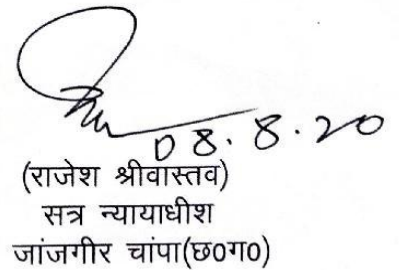 08.8.20
(राजेश श्रीवास्तव)
सत्र न्यायाधीश
जांजगीर चांपा(छ०ग०)